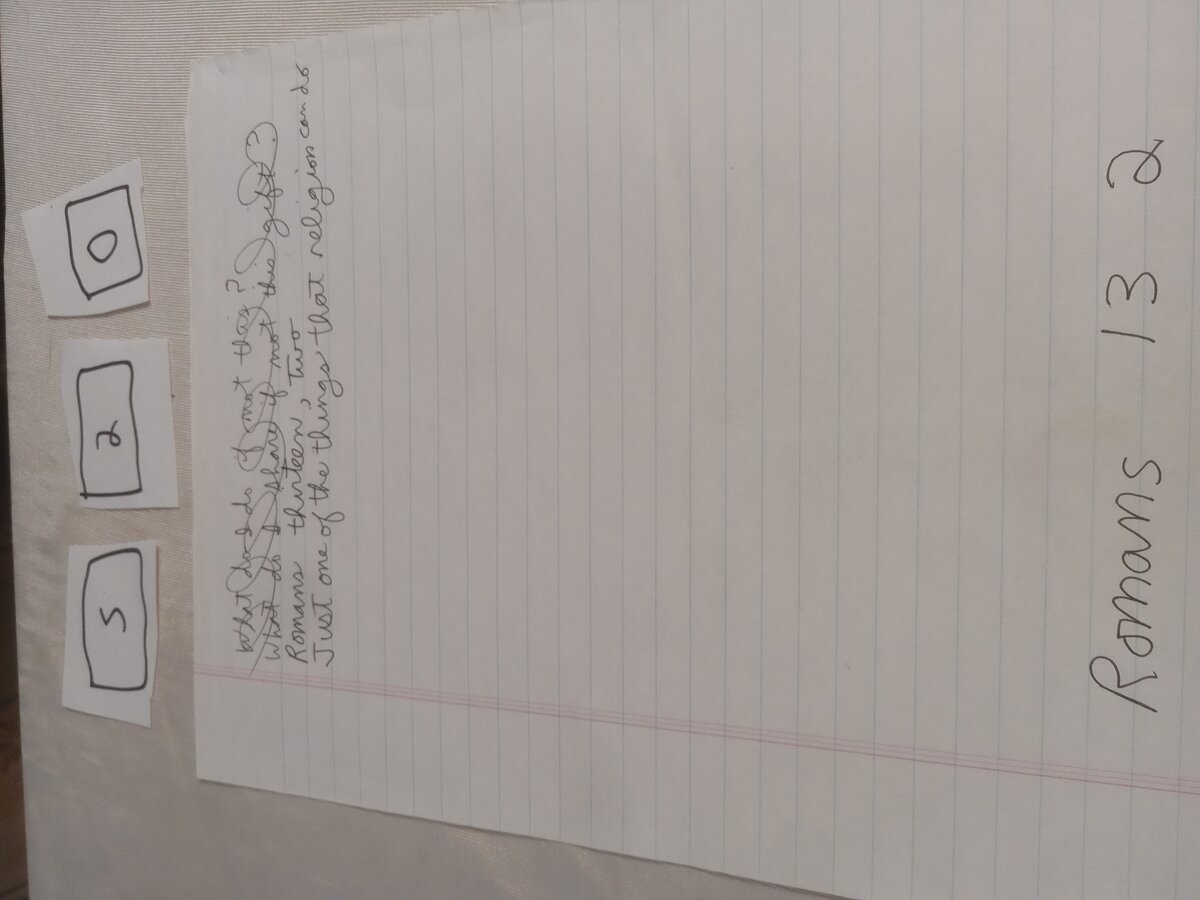 5 2 0
What do I do if not this?
What do I share if not this gift?
Romans thirteen, two
Just one of the things that religion can do
Romans 13 2